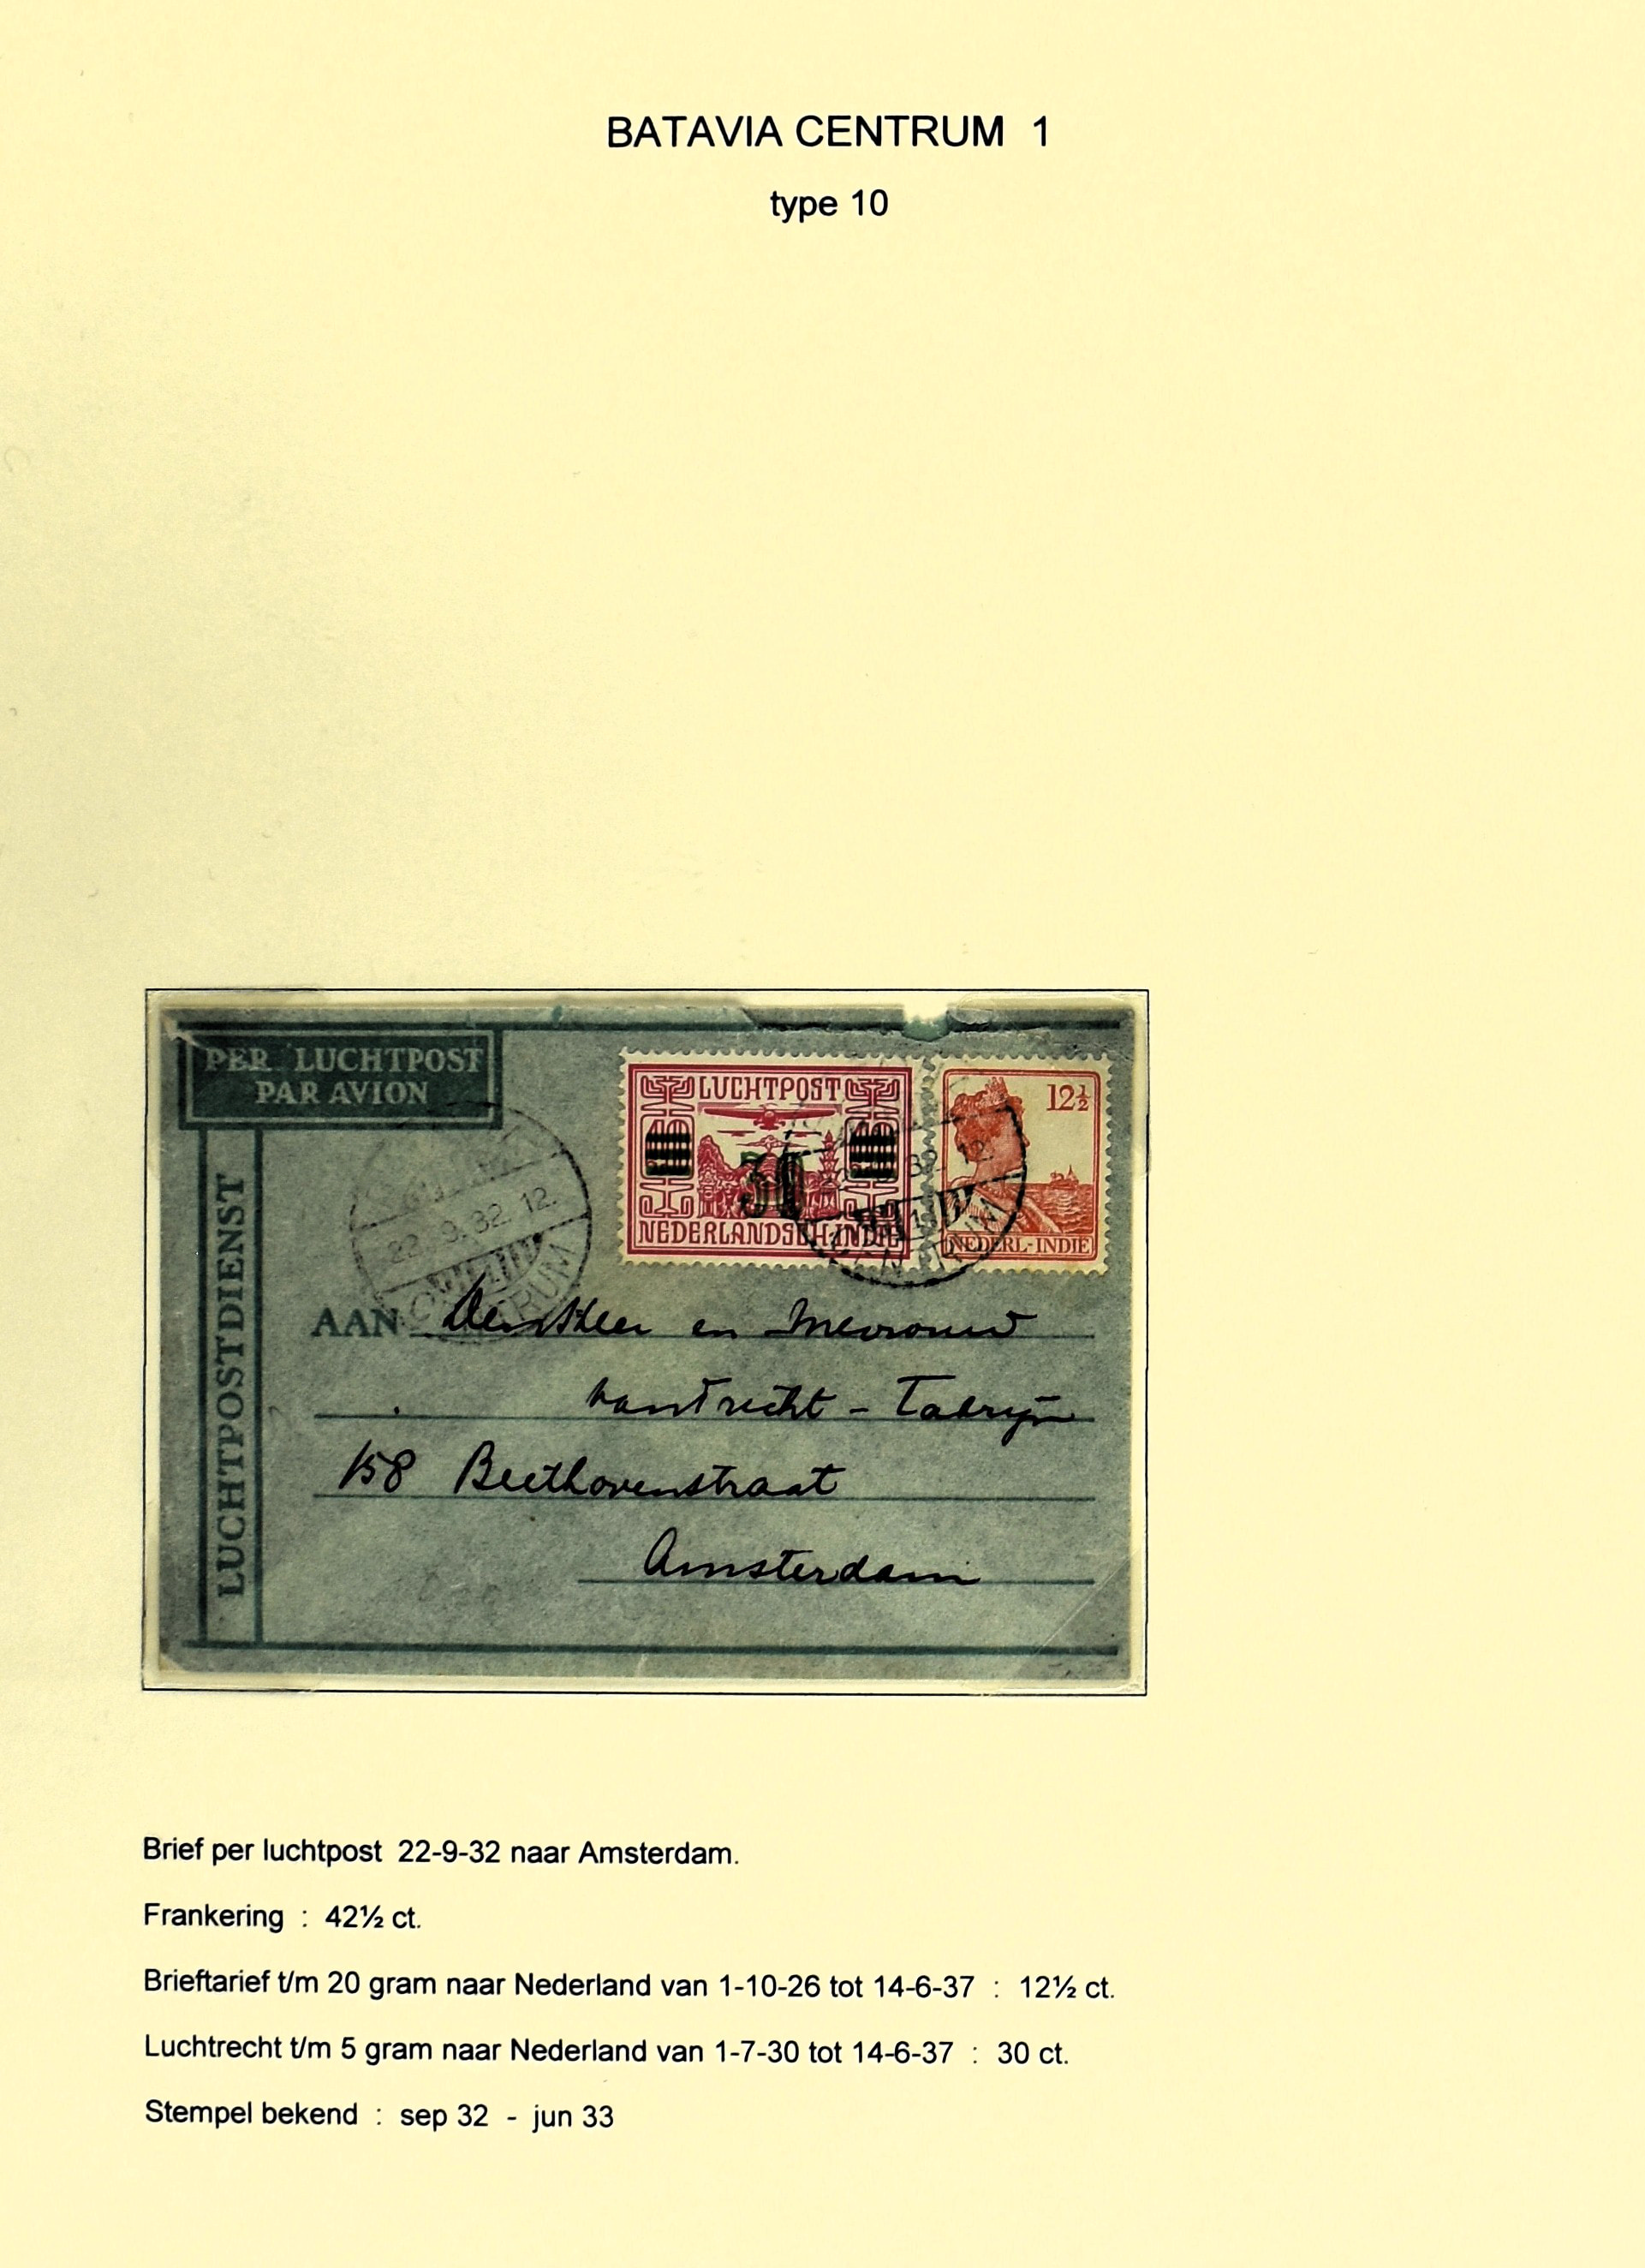 BATAVIA CENTRUM 1
type 10
PER LUCHTPOST
PAR AVION
LUCHTPOSTDIENST
LUCHTPOST
30
NEDERLANDSCH-INDIE
12½
NEDERL-INDIE
22.9.32.12.
CENTRUM
32.12.
1
CENTRUM
AAN Den Heer en Mevrouw
van Trecht - Fabryn
158 Beethovenstraat
Amsterdam
Brief per luchtpost 22-9-32 naar Amsterdam.
Frankering : 42½ ct.
Brieftarief t/m 20 gram naar Nederland van 1-10-26 tot 14-6-37 : 12½ ct.
Luchtrecht t/m 5 gram naar Nederland van 1-7-30 tot 14-6-37 : 30 ct.
Stempel bekend : sep 32 - jun 33